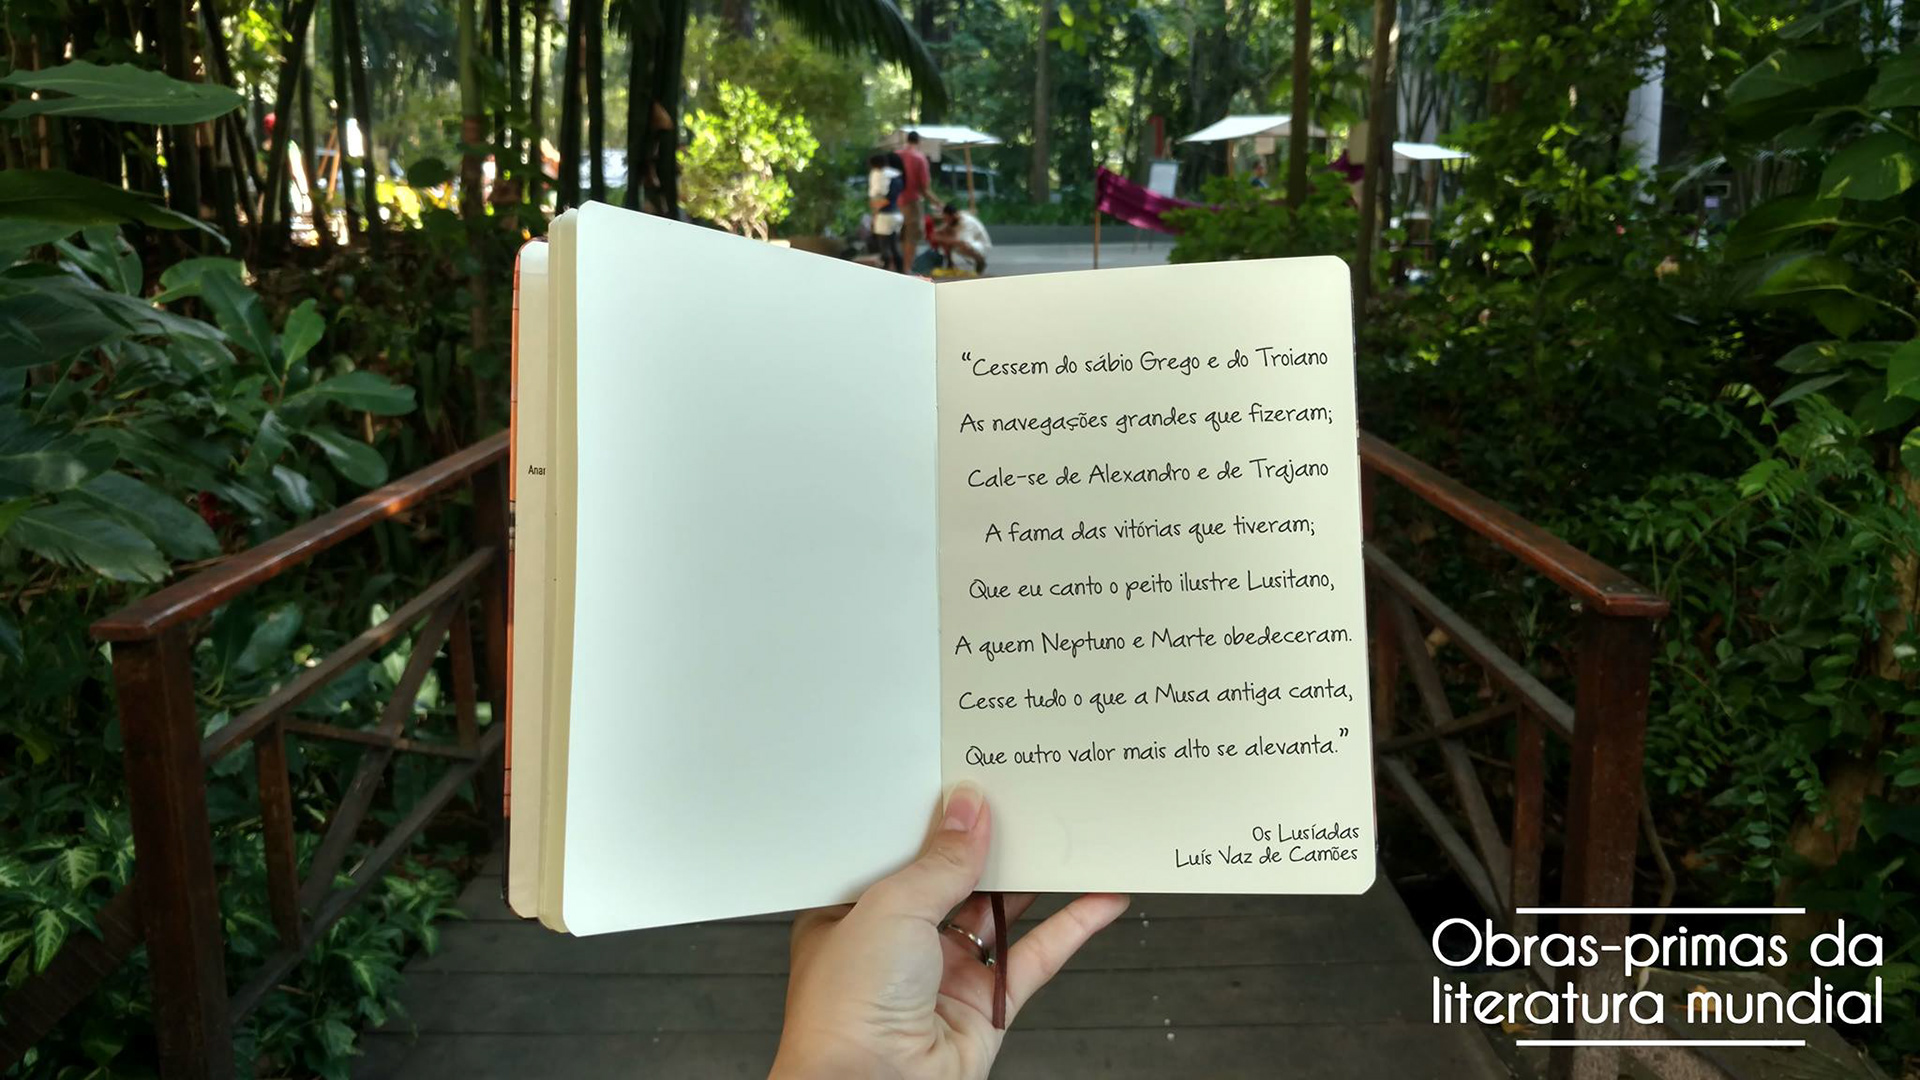 Anar
“Cessem do sábio Grego e do Troiano
As navegações grandes que fizeram;
Cale-se de Alexandro e de Trajano
A fama das vitórias que tiveram;
Que eu canto o peito ilustre Lusitano,
A quem Neptuno e Marte obedeceram.
Cesse tudo o que a Musa antiga canta,
Que outro valor mais alto se alevanta.”
Os Lusíadas
Luís Vaz de Camões
Obras-primas da
literatura mundial